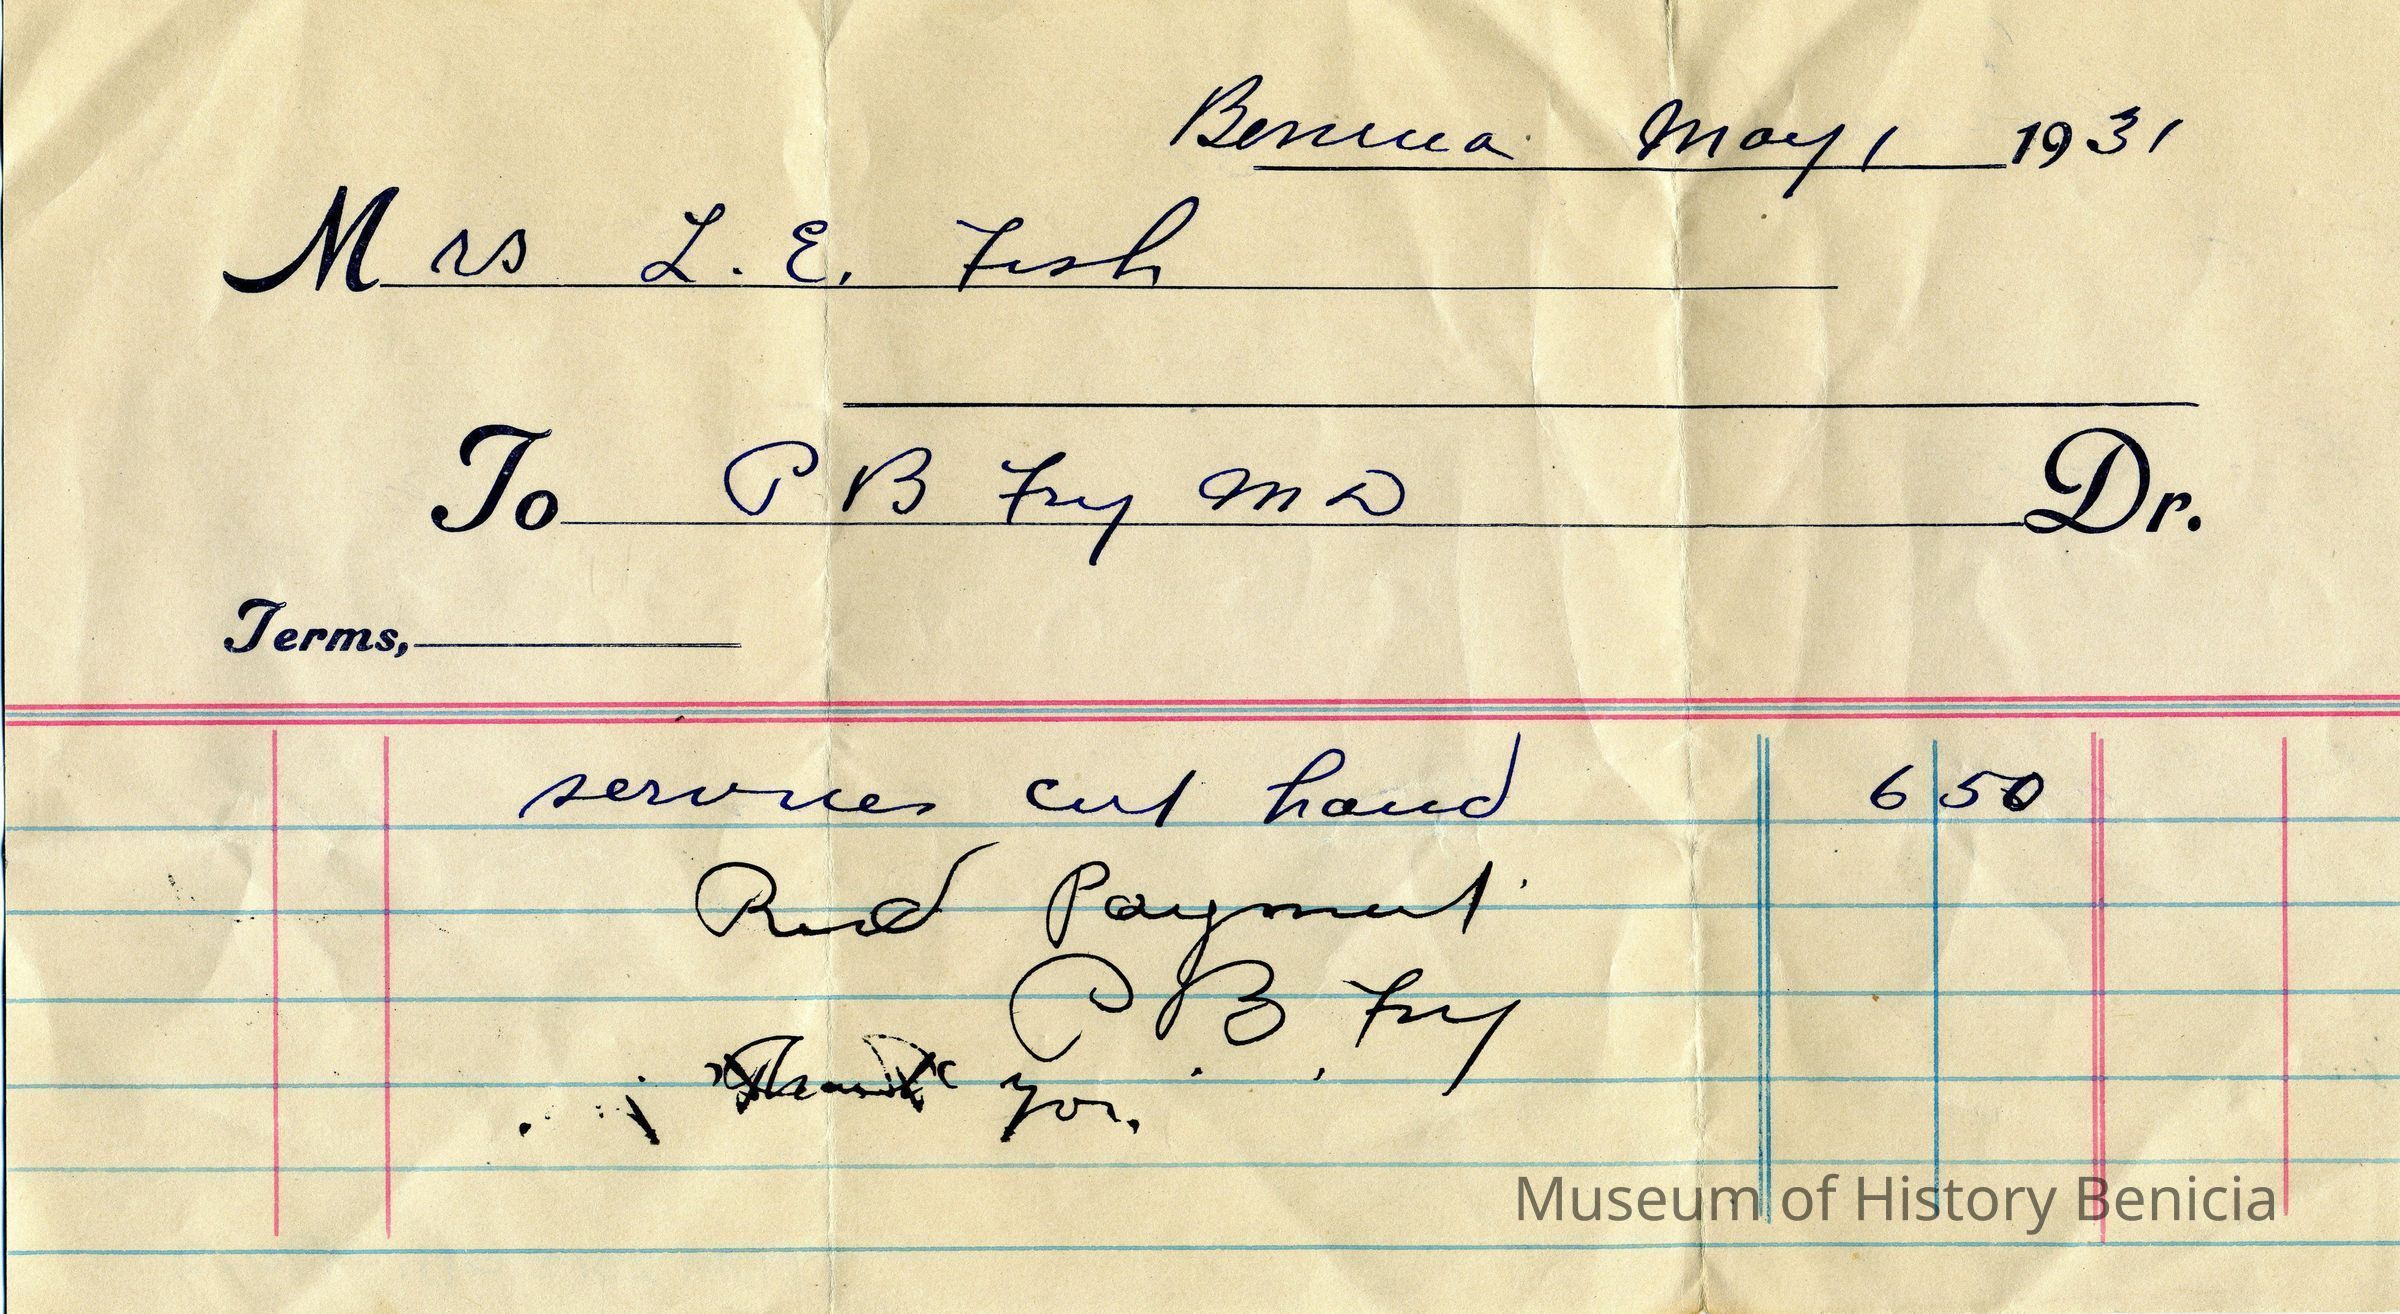 Benicia May 1 1931
Mrs L. E. Fish
To P B Fry MD Dr.
Terms,
services cut hand 6 50
Recd Payment
P B Fry
Thank you.
Museum of History Benicia